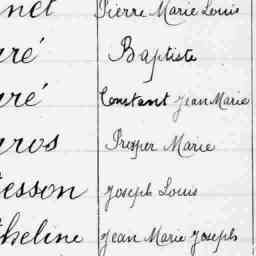 net Pierre Marie Louis
uré Baptiste
uré Constant Jean Marie
uros Prosper Marie
esson Joseph Louis
theline Jean Marie Joseph